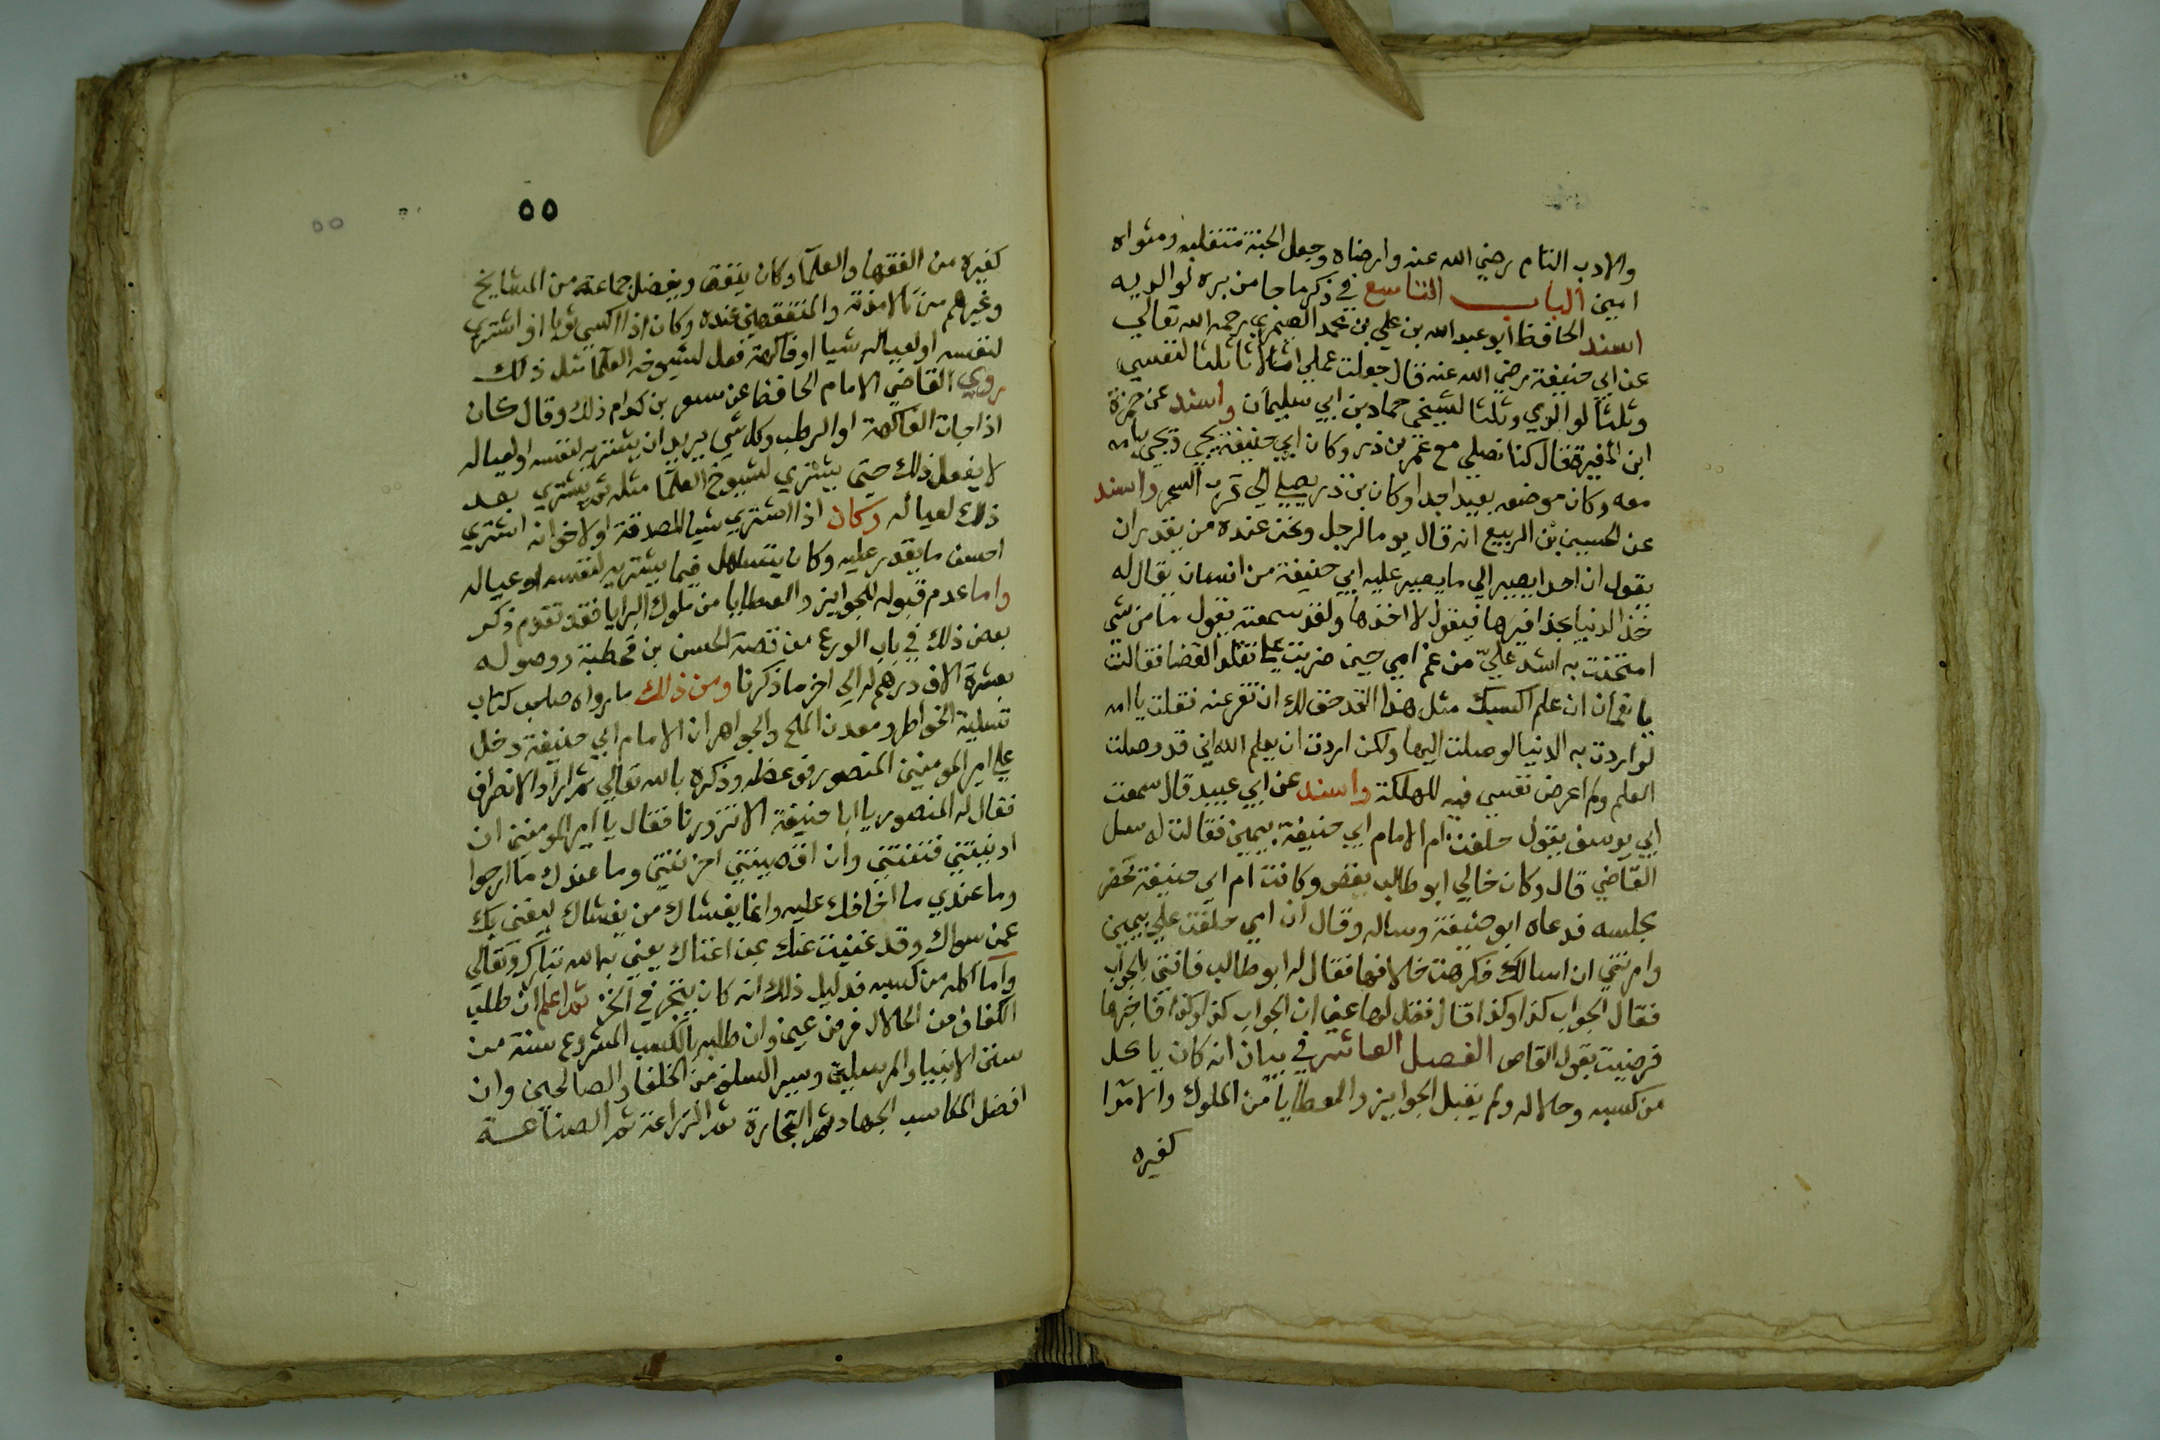 والادب التام رضي الله عنه وارضاه وجعل الجنة متقلبه ومثواه
امين الباب التاسع في ذكر ما جا من بره لوالديه
اسند الحافظ ابو عبد الله بن علي بن محمد الصيمري رحمه الله تعالي
عن ابي حنيفة رضي الله عنه قال جعلت عملي اثلاثا ثلثا لنفسي
وثلثا لوالدي وثلثا لشيخي حماد بن ابي سليمان واسند عن حمزة
ابن المغيرة قال كنا نصلي مع عمر بن ذر وكان ابي حنيفة يجي ويجي بامه
معه وكان موضعه بعيدا جدا وكان بن ذر يصلي الي قرب السحر واسند
عن الحسين بن الربيع انه قال يوما لرجل ونحن عنده من يقدر ان
يقول ان احدا يصبر الي ما يصبر عليه ابي حنيفة من انسان يقال له
خذ الدنيا بحذافيرها فيقول لا اخذها ولقد سمعته يقول ما من شي
امتحنت به اشد علي من غم امي حين ضربت علي تقلد القضا فقالت
يا نعمان ان علم اكسبك مثل هذا لقد حق لك ان تفر عنه فقلت يا امه
لو اردت به الدنيا لوصلت اليها ولكن اردت ان يعلم الله اني قد وصلت
العلم ولم اعرض نفسي فيه للهلكة واسند عن ابي عبيد قال سمعت
ابي يوسف يقول حلفت ام الامام ابي حنيفة بيمين فقالت له سل
القاضي قال وكان خالي ابو طالب يقص وكانت ام ابي حنيفة تحضر
مجلسه فدعاه ابو حنيفة وساله وقال ان امي حلفت علي بيمين
وامرتني ان اسالك فكرهت خلافها فقال له ابو طالب فافتني بالجواب
فقال الجواب كذا وكذا قال فقل لها عني ان الجواب كذا وكذا فاخبرها
فرضيت بقول القاص الفصل العاشر في بيان انه كان ياكل
من كسبه وحلاله ولم يقبل الجوايز والعطايا من الملوك والامرا
كغيره
٥٥
كغيره من الفقها والعلما وكان ينفق ويفضل جماعة من المشايخ
وغيرهم من تلامذته والمتفقهين عنده وكان اذا اكتسي ثوبا او اشتري
لنفسه او لعياله شيا او فاكهة فعل لشيوخه العلما مثل ذلك
روي القاضي الامام الحافظ عن مسعر بن كدام ذلك وقال كان
اذا جات الفاكهة او الرطب وكل شي يريد ان يشتريه لنفسه او لعياله
لا يفعل ذلك حتي يشتري لشيوخ العلما مثله ثم يشتري بعد
ذلك لعياله وكان اذا اشتري شيا للصدقة او لاخوانه اشتري
احسن ما يقدر عليه وكان يتساهل فيما يشتريه لنفسه او عياله
واما عدم قبوله للجوايز والعطايا من ملوك البرايا فقد تقدم ذكر
بعض ذلك في باب الورع من قصة الحسن بن قحطبة ووصوله
بعشرة الاف درهم له الي اخر ما ذكرنا ومن ذلك ما رواه صاحب كتاب
تسلية الخواطر ومعدن الملح والجواهر ان الامام ابي حنيفة دخل
علي امير المومنين المنصور فوعظه وذكره بالله تعالي ثم اراد الانصراف
فقال له المنصور يا ابا حنيفة الا تزورنا فقال يا امير المومنين ان
ادنيتني فتنتني وان اقصيتني احزنتني وما عندك ما ارجوا
وما عندي ما اخافك عليه وانما يغشاك من يغشاك ليغني بك
عمن سواك وقد غنيت عنك بمن اغناك يعني به الله تبارك وتعالي
واما اكله من كسبه فدليل ذلك انه كان يتجر في الخز ثم اعلم ان طلب
الكفاف من الحلال فرض عين وان طلبه بالكسب المشروع سنة من
سنن الانبيا والمرسلين وسير السلف من الخلفا والصالحين وان
افضل المكاسب الجهاد ثم التجارة ثم الزراعة ثم الصناعة